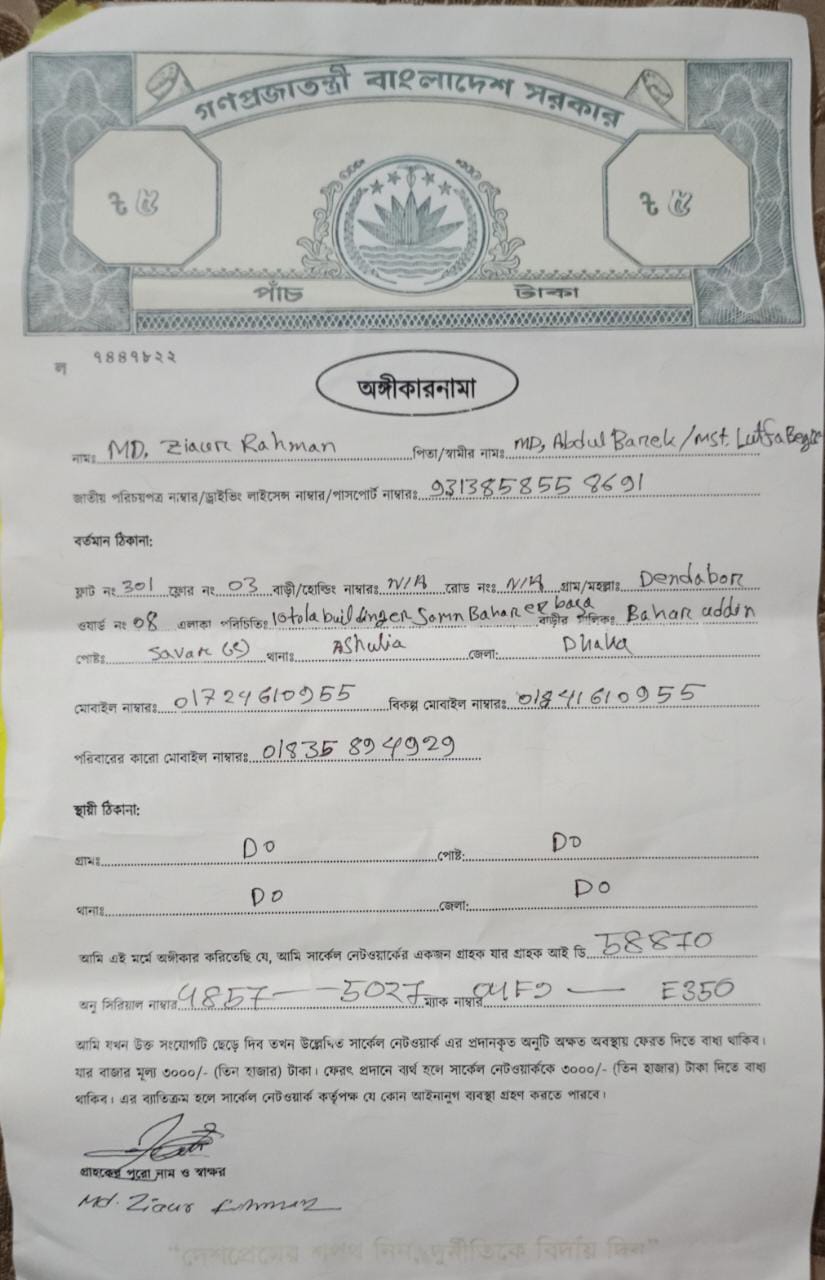 গণপ্রজাতন্ত্রী বাংলাদেশ সরকার
৳ ৫ ৳ ৫
পাঁচ টাকা
ল ৭৪৪৭৮২২
অঙ্গীকারনামা
নামঃ MD. Ziaur Rahman পিতা/স্বামীর নামঃ MD, Abdul Barek/Mst. Lutfa Begum
জাতীয় পরিচয়পত্র নাম্বার/ড্রাইভিং লাইসেন্স নাম্বার/পাসপোর্ট নাম্বারঃ 9313858558691
বর্তমান ঠিকানা:
ফ্লাট নং 301 ফ্লোর নং 03 বাড়ী/হোল্ডিং নাম্বারঃ N/A রোড নংঃ N/A গ্রাম/মহল্লাঃ Dendabor
ওয়ার্ড নং 08 এলাকা পরিচিতিঃ 10tola buildinger Samn Baharer basa বাড়ীর মালিকঃ Bahar uddin
পোষ্টঃ Savar (S) থানাঃ AShulia জেলা: Dhaka
মোবাইল নাম্বারঃ 01724610955 বিকল্প মোবাইল নাম্বারঃ 01841610955
পরিবারের কারো মোবাইল নাম্বারঃ 01835894929
স্থায়ী ঠিকানা:
গ্রামঃ DO পোষ্ট: DO
থানাঃ DO জেলা: DO
আমি এই মর্মে অঙ্গীকার করিতেছি যে, আমি সার্কেল নেটওয়ার্কের একজন গ্রাহক যার গ্রাহক আই ডি 58870
অনু সিরিয়াল নাম্বার 4857 — 5027 ম্যাক নাম্বার — E350
আমি যখন উক্ত সংযোগটি ছেড়ে দিব তখন উল্লেখিত সার্কেল নেটওয়ার্ক এর প্রদানকৃত অনুটি অক্ষত অবস্থায় ফেরত দিতে বাধ্য থাকিব।
যার বাজার মূল্য ৩০০০/- (তিন হাজার) টাকা। ফেরৎ প্রদানে ব্যর্থ হলে সার্কেল নেটওয়ার্ককে ৩০০০/- (তিন হাজার) টাকা দিতে বাধ্য
থাকিব। এর ব্যতিক্রম হলে সার্কেল নেটওয়ার্ক কর্তৃপক্ষ যে কোন আইনানুগ ব্যবস্থা গ্রহণ করতে পারবে।
গ্রাহকের পুরো নাম ও স্বাক্ষর
Md. Ziaur Rahman
"দেশপ্রেমের শপথ নিন, দুর্নীতিকে বিদায় দিন"